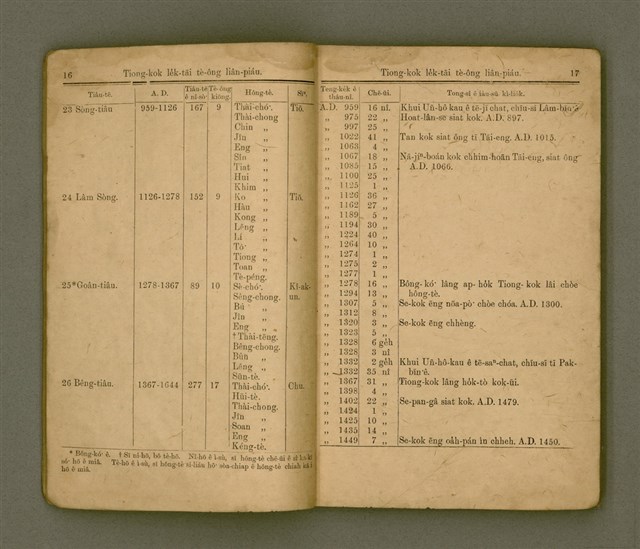 16 Tiong-kok le̍k-tāi tè-ông liân-piáu.
Tiâu-tē. A. D. Tiâu-tē ê nî-sò͘. Tè-ông kiōng. Hông-tè. Sìⁿ.
23 Sòng-tiâu 959-1126 167 9 Thài-chó͘. Tiō.
Thài-chong
Chin „
Jîn „
Eng „
Sîn „
Tiat „
Hui „
Khim „
24 Lâm Sòng. 1126-1278 152 9 Ko „ Tiō.
Hàu „
Kong „
Lêng „
Lí „
Tō͘ „
Tiong „
Toan „
Tè-pêng.
25*Goân-tiâu. 1278-1367 89 10 Sè-chó͘. Kî-ak-
Sêng-chong. un.
Bú „
Jîn „
Eng „
†Thài-tēng.
Bêng-chong.
Bûn „
Lêng „
Sūn-tè.
26 Bêng-tiâu. 1367-1644 277 17 Thài-chó͘. Chu.
Hūi-tè.
Thài-chong.
Jîn „
Soan „
Eng „
Kéng-tè.
* Bông-kó͘ ê. † Sī nî-hō, bô tè-hō.
hō ê miâ.
Tiong-kok le̍k-tāi tè-ông liân-piáu. 17
Tong-kó͘ ê thâu-nî. Chē-ūi. Tong-sî ê iàu-sū kì-lio̍k.
A.D. 959 16 nî. Khui Uñ-hô kau ê tē-jī chat, chīu-sī Lâm-bīn ê
„ 975 22 „ Hoat-lân-se siat kok. A.D. 897.
„ 997 25 „
„ 1022 41 „ Tan kok siat ông tī Tāi-eng. A.D. 1015.
„ 1063 4 „
„ 1067 18 „ Ná-jīⁿ-boán kok chhim-hoān Tāi-eng, siat ông
„ 1085 15 „ A.D. 1066.
„ 1100 25 „
„ 1125 1 „
„ 1126 36 „
„ 1162 27 „
„ 1189 5 „
„ 1194 30 „
„ 1224 40 „
„ 1264 10 „
„ 1274 1 „
„ 1275 2 „
„ 1277 1 „
„ 1278 16 „ Bông-kó͘ lâng ap-ho̍k Tiong-kok lâi chòe
„ 1294 13 „ hông-tè.
„ 1307 5 „ Se-kok ēng nōa-pò͘ chòe chóa. A.D. 1300.
„ 1312 8 „
„ 1320 3 „ Se-kok ēng chhèng.
„ 1323 5 „
„ 1328 6 ge̍h
„ 1328 3 nî
„ 1332 2 ge̍h Khui Uñ-hô-kau ê tē-saⁿ-chat, chīu-sī tī Pak-
„ 1332 35 nî bīn ê.
„ 1367 31 „ Tiong-kok lâng ho̍k-tò kok-ūi.
„ 1398 4 „
„ 1402 22 „ Se-pan-gâ siat kok. A.D. 1479.
„ 1424 1 „
„ 1425 10 „
„ 1435 14 „
„ 1449 7 „ Se-kok ēng oa̍h-pán ìn chheh. A.D. 1450.